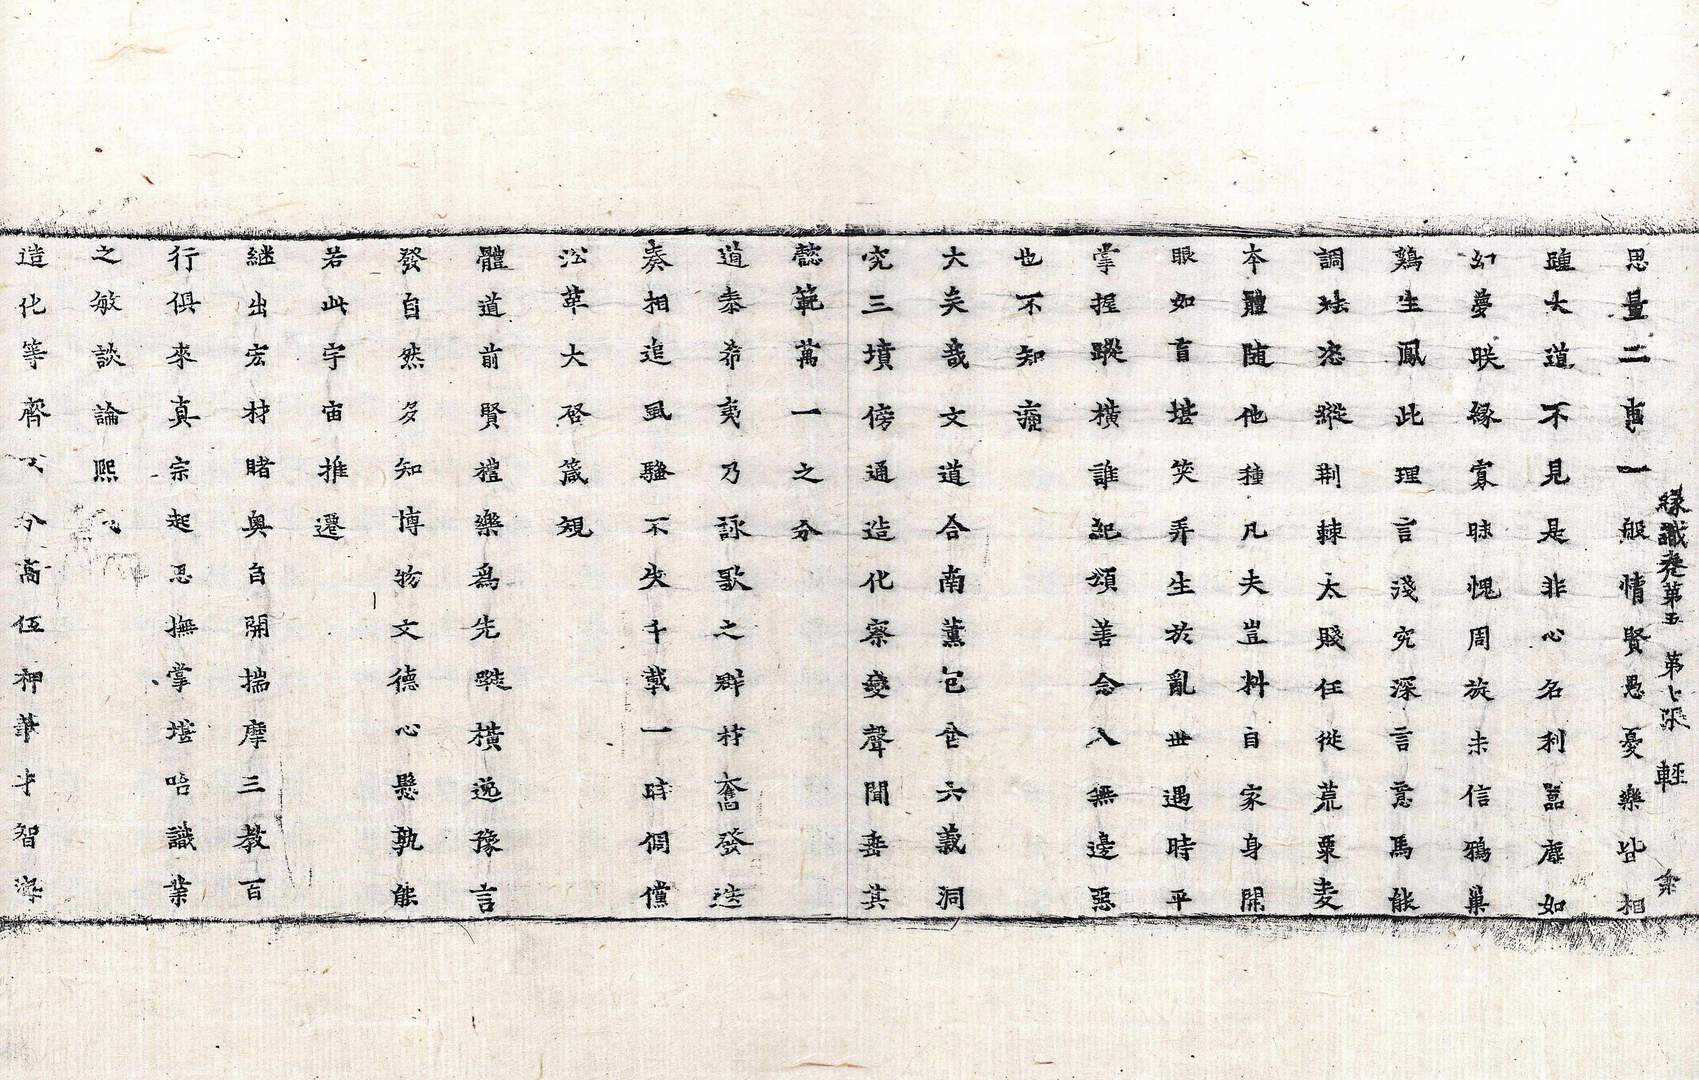 思量二事一般情賢愚憂樂皆相
緣識卷第五　第七張　輕
踵大道不見是非心名利囂塵如
幻夢联緣寡昧愧周旋未信鴉巢
鷄生鳳此理言淺究深言意馬能
調恣縱荆棘太賤任從荒粟麦
本體随他種凡夫豈抖自家身開
眼如盲堪笑弄生於亂世遇時平
掌握蹤橫誰紀頌善念入無邊惡
也不知
大矣哉文道合南薰包含六義洞
究三墳傍通造化察變聲聞垂其
懿範萬一之分
道泰希夷乃詠歌之群材奮發造
奏相追風騷不失千載一時倜儻
沿革大啓箴規
體道前賢禮樂爲先縱橫逸豫言
發自然多知博物文德心懸孰能
若此宇宙推遷
継出宏材睹奥自開揣摩三教百
行俱來真宗起思撫掌堪哈識業
之敏談論熙
造化等齊分高低神筆才智海